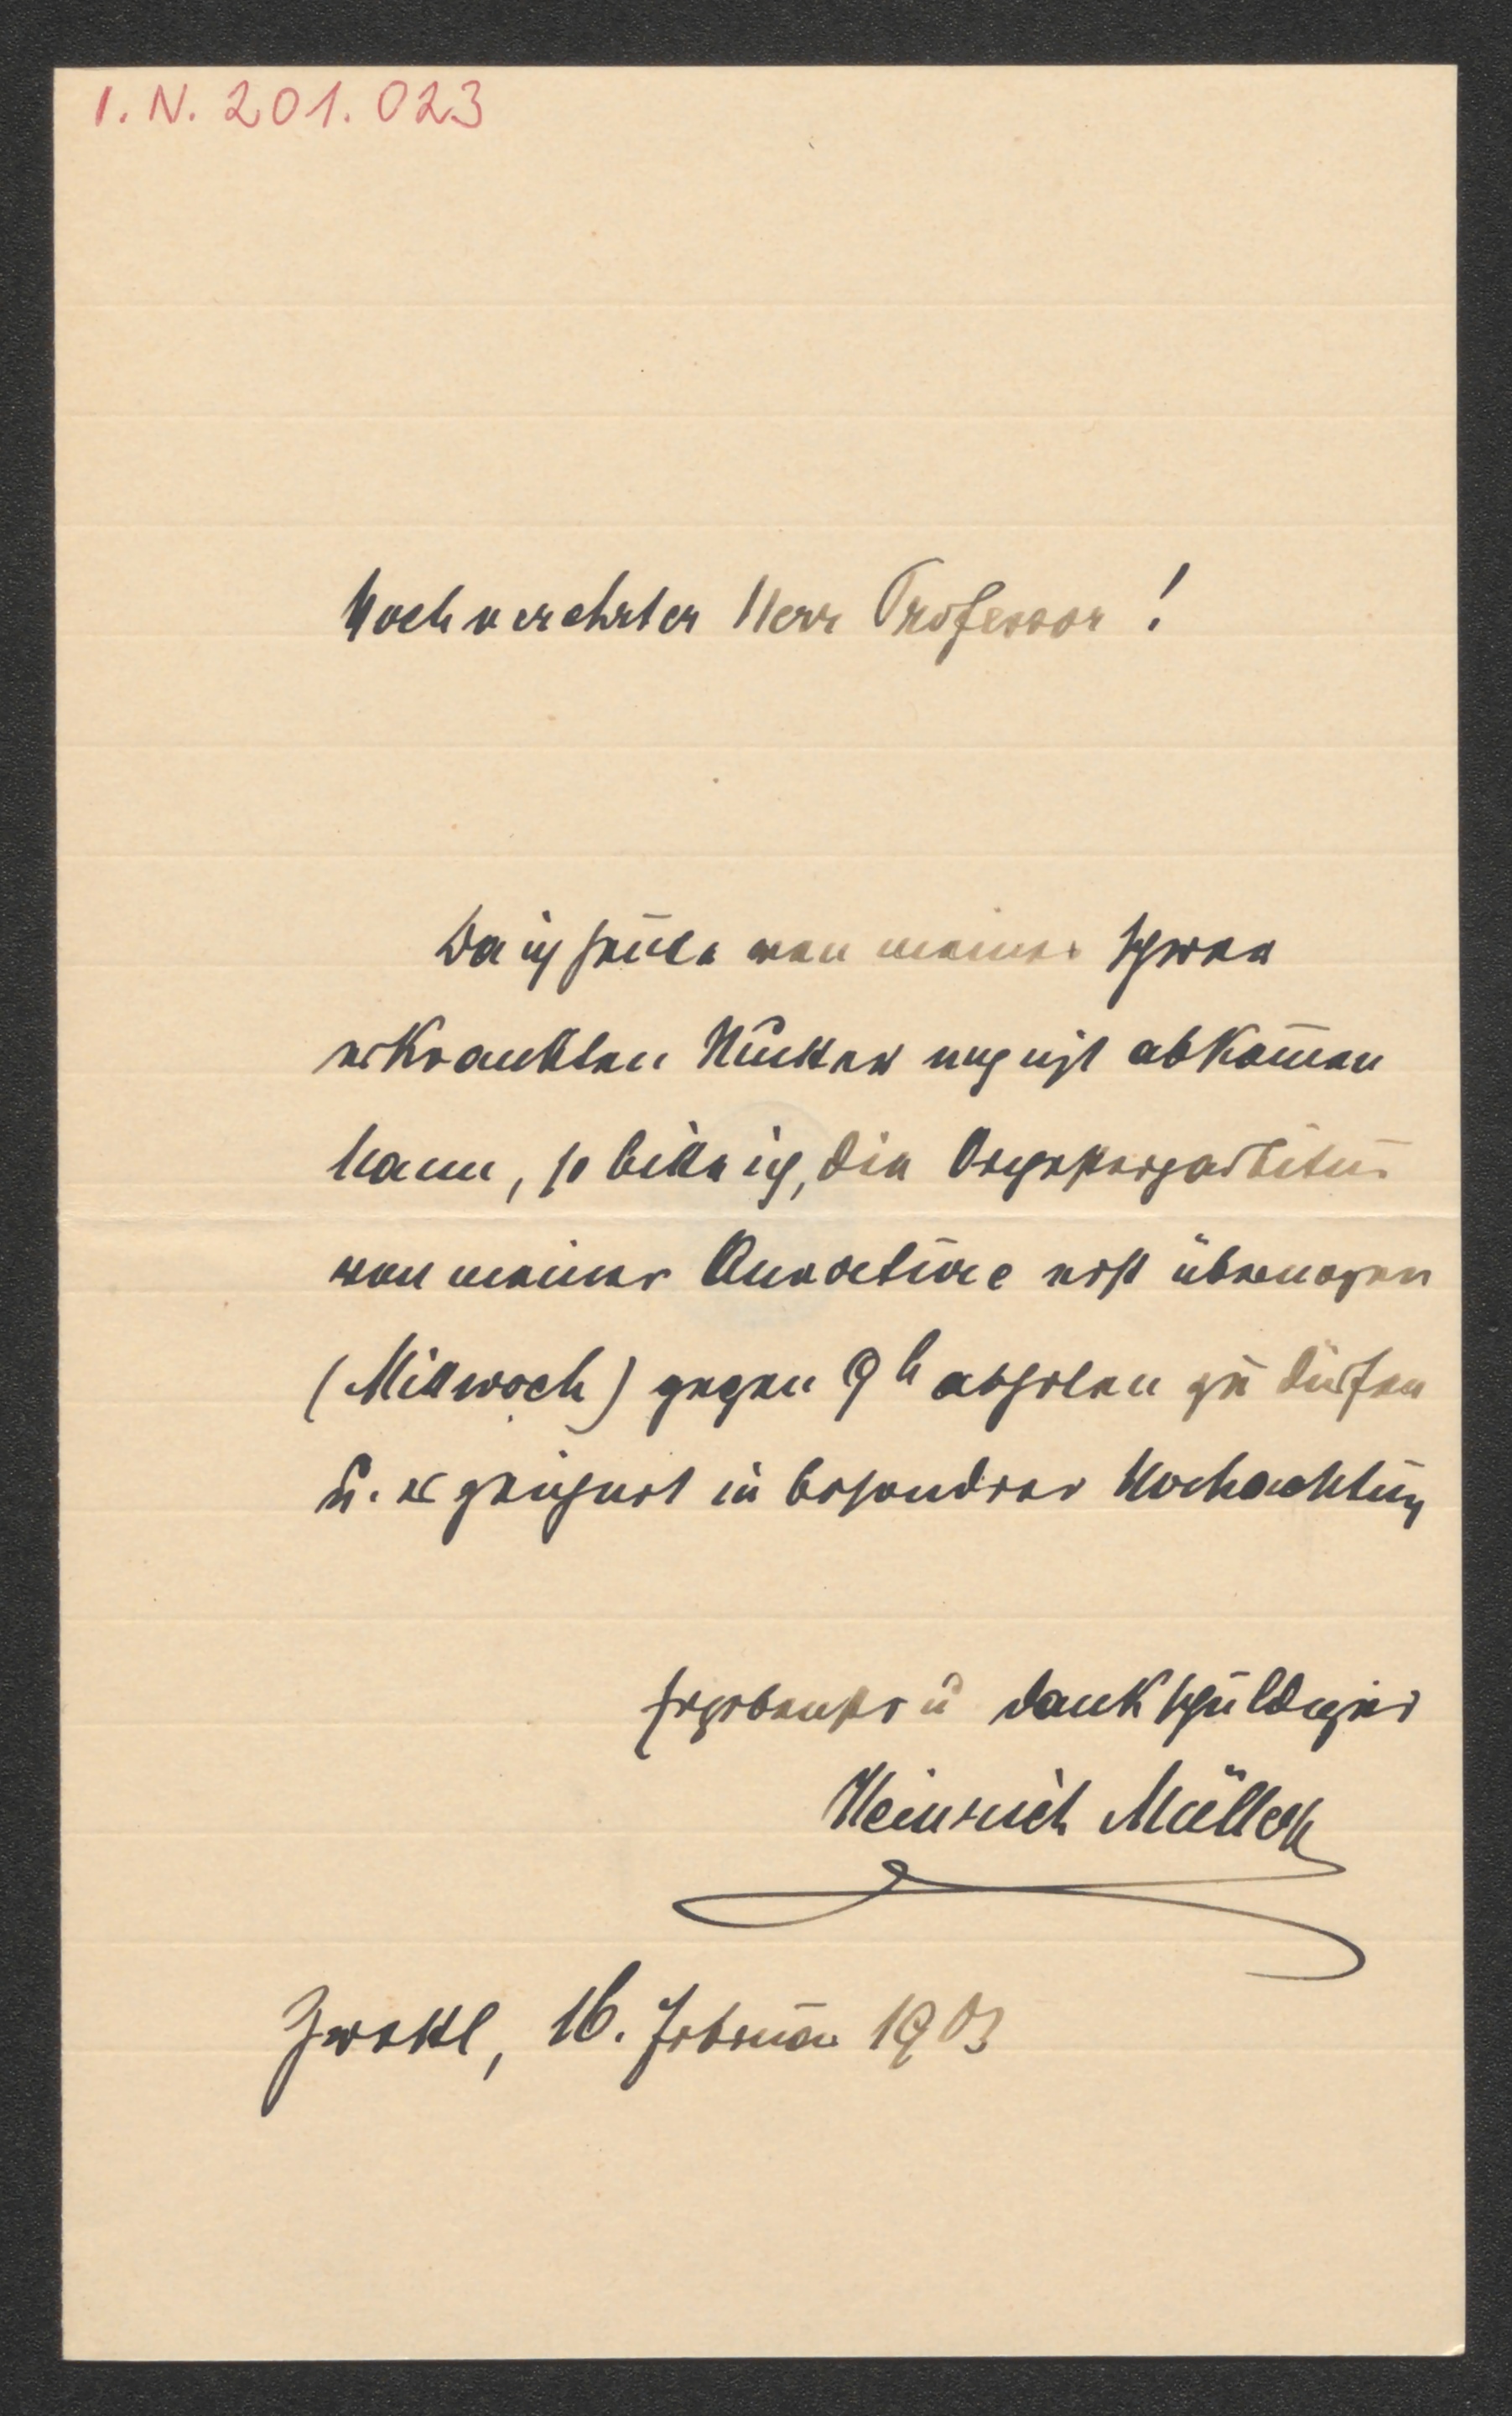 I. N. 201.023
Hochverehrter Herr Professor!
Da ich heute von meiner schwer
erkrankten Mutter nch nicht abkom̅en
kann, so bitte ich, die Orchesterpartitur
von meiner Ouverture erst übermorgen
(Mittwoch) gegen 9h abholen zu dürfen
u. zeichnet in besondrer Hochachtung
Ergebenster u dankschuldigster
Heinrich Müller
Zwettl, 16. Februar 1903